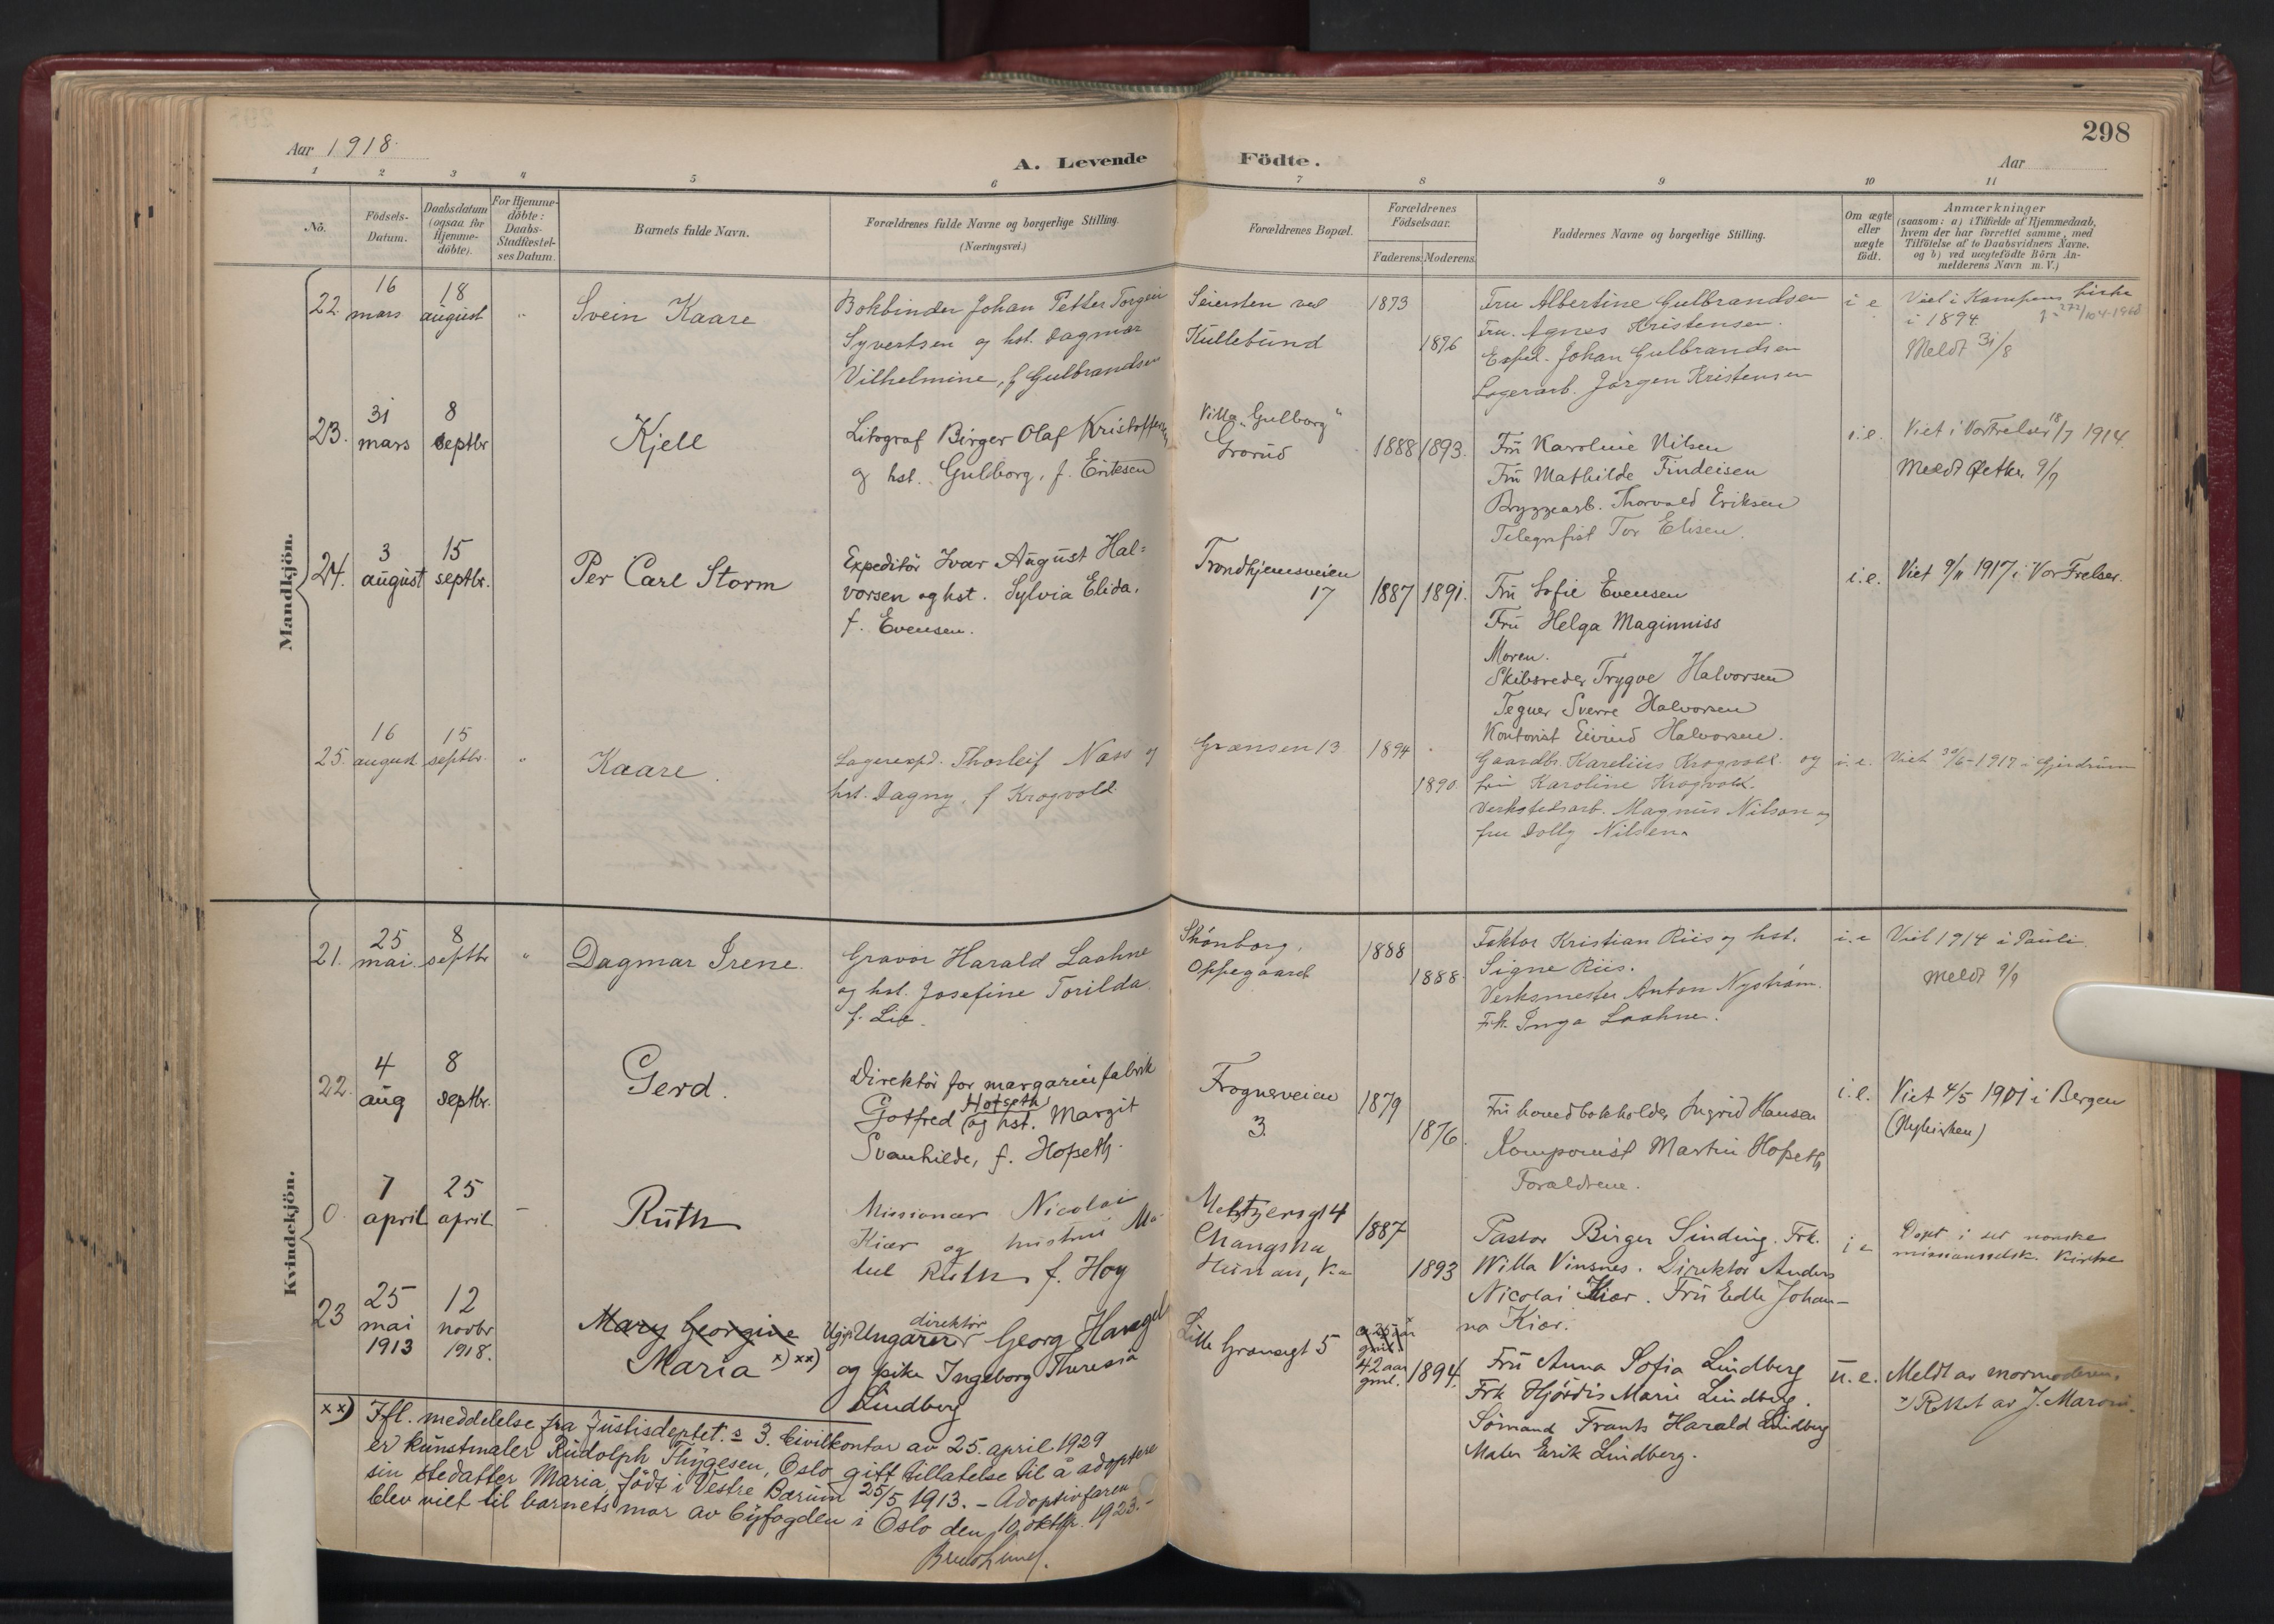 298
Aar 1918.
A. Levende Födte.
Aar
1 2 3 4 5 6 7 8 9 10 11
No.
Födsels-
Datum.
Daabsdatum
(ogsaa for
Hjemme-
döbte).
For Hjemme-
döbte:
Daabs-
Stadfæstel-
ses Datum.
Barnets fulde Navn.
Forældrenes fulde Navne og borgerlige Stilling.
(Næringsvei.)
Forældrenes Bopæl.
Forældrenes
Födselsaar.
Faderens. Moderens.
Faddernes Navne og borgerlige Stilling.
Om ægte
eller
uægte
födt.
Anmærkninger
(saasom: a) i Tilfælde af Hjemmedaab,
hvem der har forrettet samme, med
Tilföielse af to Daabsvidners Navne.
og b) ved uægtefödte Börn An-
melderens Navn m. V.)
Mandkjön.
22. 16 mars 18 august "
Svein Kaare
Bokbinder Johan Petter Torgein
Syvertsen og hst. Dagmar
Vilhelmine, f Gulbrandsen
Seiersten ved
Kullebund
1873 1876
Fru Albertine Gulbrandsen
Fru. Agnes Kristensen.
Exped. Johan Gulbrandsen
Lagerarb. Jørgen Kristensen
i e
Viet i Kampens kirke
i 1894.
Meldt 31/8
23. 31 mars 8 septbr
Kjell
Litograf Birger Olaf Kristoffersen
og hst. Gulborg, f. Eriksen
Villa "Gulborg"
Grorud
1888 1893.
Fru Karoline Nilsen
Fru Mathilde Findeisen
Bryggearb. Thorvald Eriksen
Telegrafist Tor Elisen.
i.e.
Viet i VorFrelser 18/7 1914.
Meldt 9/9
24. 3 august 15 septbr.
Per Carl Storm
Expeditör Ivar August Hal=
vorsen og hst. Sylvia Elida,
f. Evensen.
Trondhjemsveien
17
1887 1891.
Fru Sofie Evensen
Fru Helga Maginniss
Moren.
Skibsreder Trygve Halvorsen
Tegner Sverre Halvorsen
Kontorist Eivind Halvorsen.
i.e.
Viet 9/11 1917 i Vor Frelser.
25. 16 august 15 septbr. "
Kaare.
Lagerexpd. Thorleif Næss og
hst. Dagny, f Krogvold
Grænsen 13
1894 1890.
Gaardbr. Karelius Krogvold og
fru Karoline Krogvold.
Verkstedsarb. Magnus Nilsen og
fru Dolly Nilsen.
i.e.
Viet 30/6-1917 i Gjerdrum
Kvindekjön.
21. 25 mai. 8 septbr "
Dagmar Irene.
Gravör Harald Laahne
og hst. Josefine Torilda.
f. Lie.
Skönborg,
Oppegaard
1888 1888.
Faktor Kristian Riis og hst.
Signe Riis.
Verksmester Anton Nyström.
Frk. Inga Laahne.
i.e
Viet 1914 i Pauli.
Meldt 9/9
22. 4 aug 8 septbr.
Gerd.
Direktör for margarinfabrik
Gotfred Hopseth og hst. Margit
Svanhilde, f. Hopseth.
Frognerveien
3.
1879 1876.
Fru hovedbokholder Ingrid Hansen
Komponist Martin Hopseth
Foraldrene.
i.e.
Viet 4/5 1901 i Bergen
(Nykirken)
0. 7 april 25 april –
Ruth
Missionær Nicolai
Kiær og hustru Ma-
bel Ruth f. Hoy
Meltzersgt 4
Changsha
Hunan, Ka
1887 1893
Pastor Birger Sinding. Frk.
Willa Vinsnes. Direktør Anders
Nicolai Kiær. Fru Edle Johan-
na Kiær.
i e
Döpt i det norske
missionsselsk. Kirke
23 25 mai 1913 12 novbr 1918.
Mary Georgine
Maria x) xx)
Ugift Ungarer direktør Georg Harsgel
og pike Ingeborg Theresia
Lindberg
Lille Grænsegt 5
42 aar
gml. 1894.
Fru Anna Sofia Lindberg
Frk Hjördis Marie Lindberg.
Sömand Frants Harald Lindberg
Maler Erik Lindberg.
u. e.
Meldt av mormoderen.
x) Rettet av J. Maroni.
xx) Ifl. meddelelse fra Justisdeptet.s 3. Civilkontor av 25. april 1929
er kunstmaler Rudolph Thygesen, Oslo gitt tillatelse til å adoptere
sin stedatter Maria, født i Vestre Bærum 25/5 1913. – Adoptivfaren
blev viet til barnets mor av Byfogden i Oslo den 10. oktbr. 1923.–